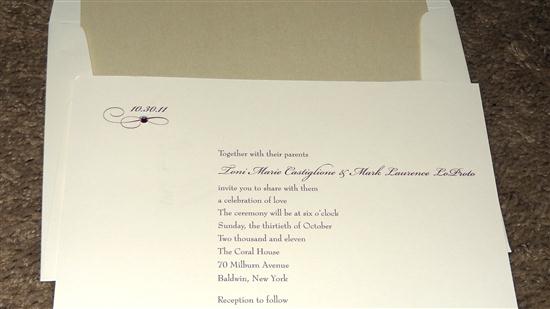 10.30.11
Together with their parents
Toni Marie Castiglione & Mark Laurence LoProto
invite you to share with them
a celebration of love
The ceremony will be at six o'clock
Sunday, the thirtieth of October
Two thousand and eleven
The Coral House
70 Milburn Avenue
Baldwin, New York
Reception to follow